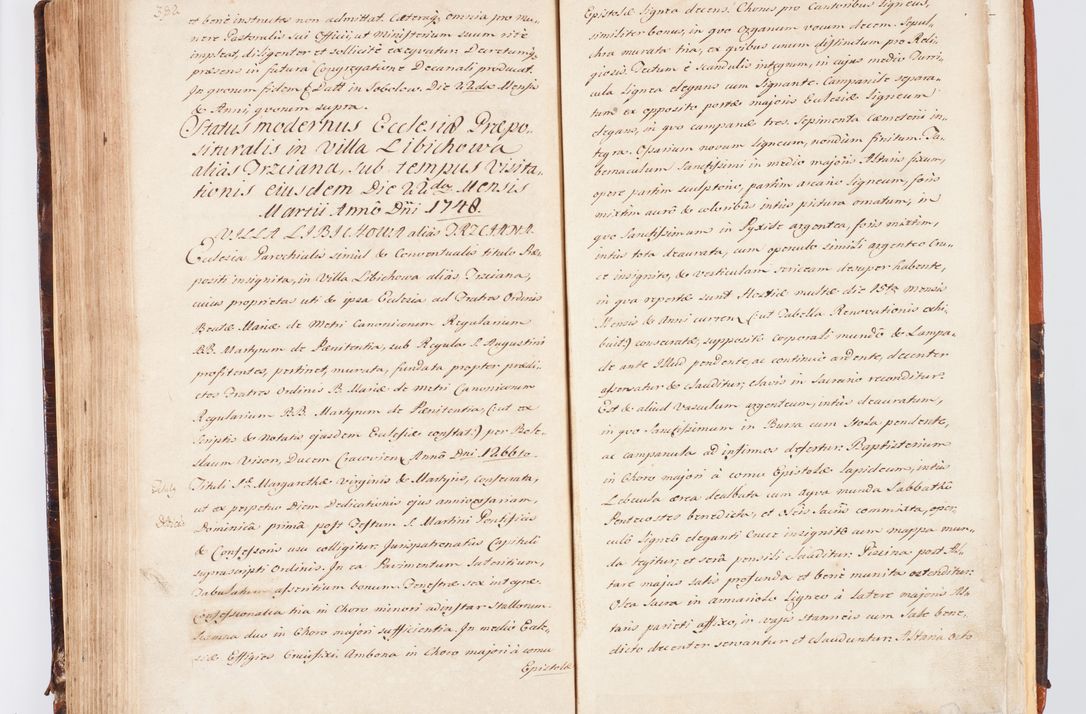 382.
et benè instructus non admittat. Cæteraq; omnia pro mu-
nere Pastoralis sui Officii, ut Ministerium suum ritè
impleat, diligenter et sollicitè exequatur. Decretumq;
præsens in futura Congregatione Decanali producat.
In quorum fidem &. Datt in Sobolow. Die 22da Mensis
& Anni, quorum supra.
Status modernus Ecclesiæ Præpo-
situralis in Villa Libichowa
aliàs Trzciana, sub tempus Visita-
tionis eiusdem Die 22da Mensis
Martii Annô Dñi 1748.
VILLA LIBICHOWA aliàs TRZCIANA.
Ecclesia Parochialis simul & Conventualis titulo Præ-
positi insignita, in Villa Libichowa aliàs Trzciana,
cuius proprietas uti & ipsa Ecclesia ad Fratres Ordinis
Beatæ Mariæ de Metri Canonicorum Regularium
BB. Martyrum de Pœnitentia, sub Regula S. Augustini
profitentes, pertinet, murata, fundata propter prædi-
ctos Fratres Ordinis B. Mariæ de Metri Canonicorum
Regularium BB. Martyrum de Pœnitentia, (:ut ex
Scriptis & Notatis ejusdem Ecclesiæ constat:) per Bole-
slaum Ducem Cracovien. Annô Dni 1266to.
Tituli S. Margarethæ Virginis & Martyris, consecrata,
ut ex perpetuo Diem Dedicationis ejus anniversariam,
Dominicâ primâ post Festum S. Martini Pontificis
& Confessoris usu colligitur. Jurispatronatûs Capituli
suprascripti Ordinis. In ea Pavimentum lateritium,
Tabulatum asseritium bonum. Fenestræ sex integræ.
Confessionalia tria in Choro minori adinstar Stallorum.
Scamna duo in Choro majori sufficientia. In medio Eccle-
siæ Effigies Crucifixi. Ambona in Choro majori à cornu
Epistolæ
Epistolæ lignea decens. Chorus pro Cantoribus ligneus,
similiter bonus, in quo Organum vocum decem. Sepul-
chra murata tria, ex quibus unum distinctum pro Reli-
giosis. Tectum è scandulis integrum, in cujus medio Turri-
cula lignea elegans cum Signante. Campanile separa-
tum ex opposito portæ majoris Ecclesiæ ligneum
elegans, in quo campanæ tres. Sepimenta Cæmeterii in-
tegra. Ossarium novum ligneum, nondum finitum. Ta-
bernaculum Sanctissimi in medio majoris Altaris fixum,
opere partim sculptorio, partim arcario ligneum, foris
mixtim aurô & coloribus intùs pictura ornatum, in
quo Sanctissimum in Pyxide argentea, foris mixtim,
intùs tota deaurata, cum operculo simili argenteo Cru-
ce insignito, & vesticulam sericeam desuper habente,
in qua repertæ sunt Hostiæ multæ die 15ta Mensis
Mensis & Anni curren. (:ut Tabella Renovationis exhi-
buit:) consecratæ, supposito corporali mundô & Lampa-
de ante Illud pendente, ac continuò ardente, decenter
asservatur & clauditur, clavis in Sacrario reconditur.
Est & aliud Vasculum argenteum, intùs deauratum,
in quo Sanctissimum in Bursa cum Stola pendente,
ac campanula ad infirmos defertur. Baptisterium
in Choro majori à cornu Epistolæ lapideum, intùs
Lebecula ærea dealbata cum Aqva munda Sabbathô
Pentecostes benedicta, et Oleis Sacris commixta, oper-
culô ligneô eleganti Cruce insignitô cum mappa mun-
da tegitur, et serâ pensili clauditur. Piscina post Al-
tare majus satis profunda et benè munita ostenditur.
Olea Sacra in armariolo ligneo à latere majoris Al-
taris parieti affixo, in vasis stanneis cum Sale bene-
dicto decenter servantur et clauduntur. Altaria octo